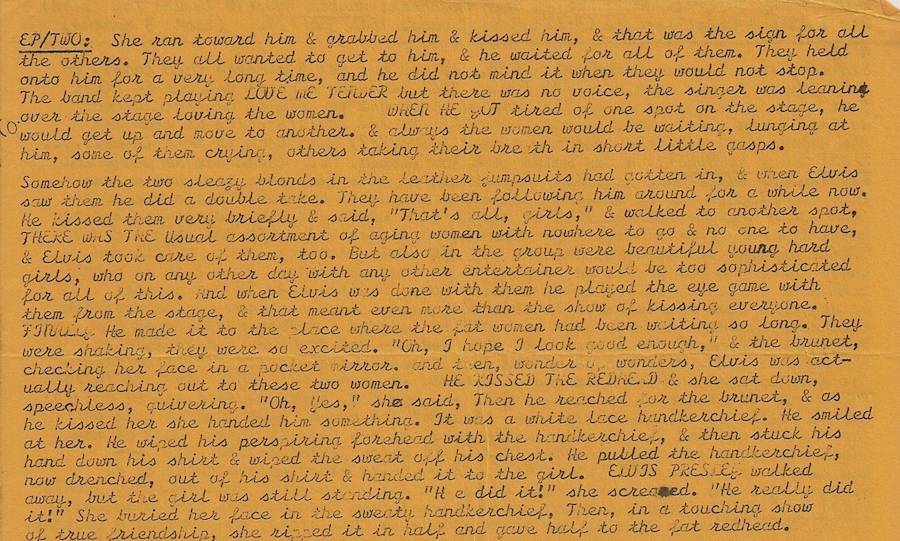 EP/TWO: She ran toward him & grabbed him & kissed him, & that was the sign for all
the others. They all wanted to get to him, & he waited for all of them. They held
onto him for a very long time, and he did not mind it when they would not stop.
The band kept playing LOVE ME TENDER but there was no voice, the singer was leaning
over the stage loving the women. WHEN HE GOT tired of one spot on the stage, he
would get up and move to another. & always the women would be waiting, lunging at
him, some of them crying, others taking their breath in short little gasps.
Somehow the two sleazy blonds in the leather jumpsuits had gotten in, & when Elvis
saw them he did a double take. They have been following him around for a while now.
He kissed them very briefly & said, "That's all, girls," & walked to another spot,
THERE WAS THE Usual assortment of aging women with nowhere to go & no one to have,
& Elvis took care of them, too. But also in the group were beautiful young hard
girls, who on any other day with any other entertainer would be too sophisticated
for all of this. And when Elvis was done with them he played the eye game with
them from the stage, & that meant even more than the show of kissing everyone.
FINALLY He made it to the place where the fat women had been waiting so long. They
were shaking, they were so excited. "Oh, I hope I look good enough," & the brunet,
checking her face in a pocket mirror. and then, wonder of wonders, Elvis was act-
ually reaching out to these two women. HE KISSED THE REDHEAD & she sat down,
speechless, quivering. "Oh, Yes," she said, Then he reached for the brunet, & as
he kissed her she handed him something. It was a white lace handkerchief. He smiled
at her. He wiped his perspiring forehead with the handkerchief, & then stuck his
hand down his shirt & wiped the sweat off his chest. He pulled the handkerchief,
now drenched, out of his shirt & handed it to the girl. ELVIS PRESLEY walked
away, but the girl was still standing. "H e did it!" she screamed. "He really did
it!" She buried her face in the sweaty handkerchief, Then, in a touching show
of true friendship, she ripped it in half and gave half to the fat redhead.